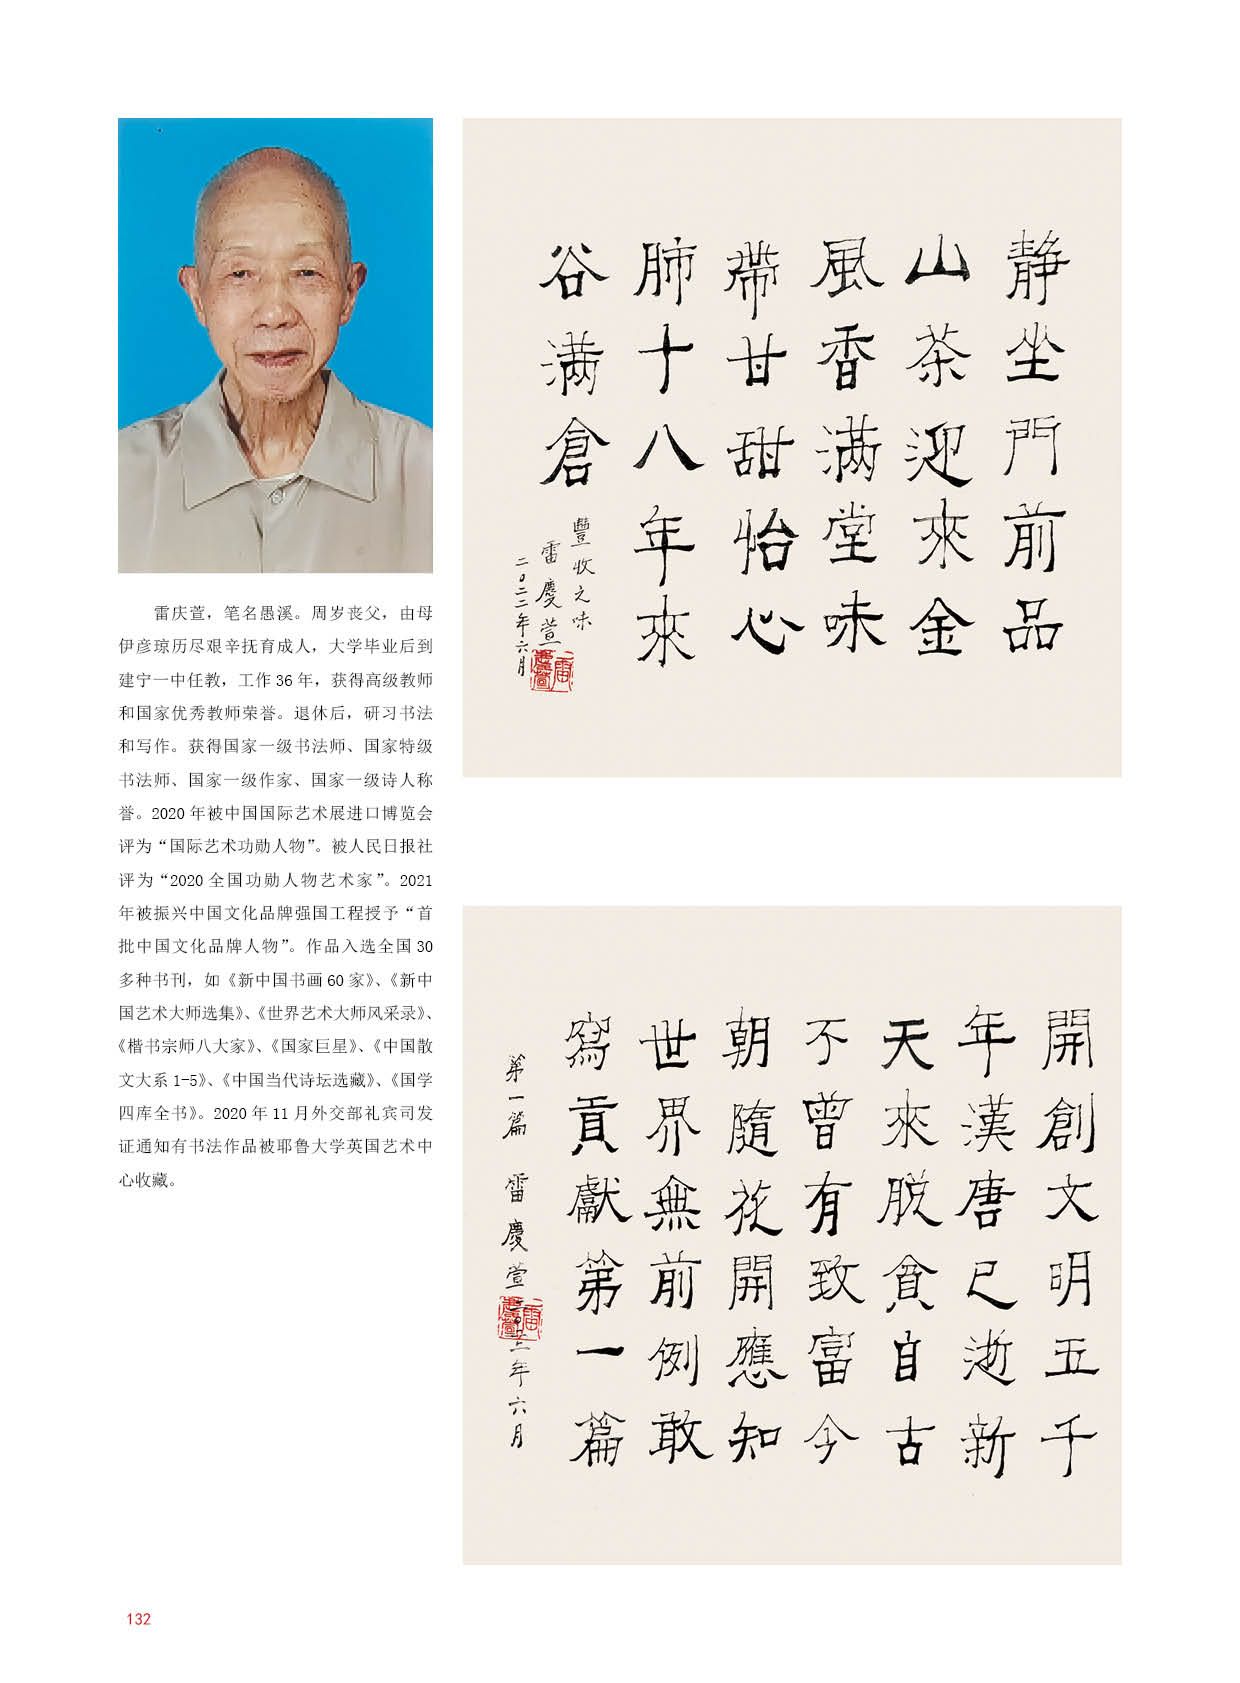 雷庆萱，笔名愚溪。周岁丧父，由母
伊彦琼历尽艰辛抚育成人，大学毕业后到
建宁一中任教，工作 36 年，获得高级教师
和国家优秀教师荣誉。退休后，研习书法
和写作。获得国家一级书法师、国家特级
书法师、国家一级作家、国家一级诗人称
誉。2020 年被中国国际艺术展进口博览会
评为“国际艺术功勋人物”。被人民日报社
评为“2020 全国功勋人物艺术家”。2021
年被振兴中国文化品牌强国工程授予“首
批中国文化品牌人物”。作品入选全国 30
多种书刊，如《新中国书画 60 家》、《新中
国艺术大师选集》、《世界艺术大师风采录》、
《楷书宗师八大家》、《国家巨星》、《中国散
文大系 1-5》、《中国当代诗坛选藏》、《国学
四库全书》。2020 年 11 月外交部礼宾司发
证通知有书法作品被耶鲁大学英国艺术中
心收藏。
静坐門前品
山茶迎來金
風香满堂味
帶甘甜怡心
肺十八年來
谷满倉
豐收之味
雷慶萱
二〇二二年六月
開創文明五千
年漢唐已逝新
天來脱貧自古
不曾有致富今
朝隨花開應知
世界無前例敢
寫貢獻第一篇
第一篇 雷慶萱二〇二二年六月
132